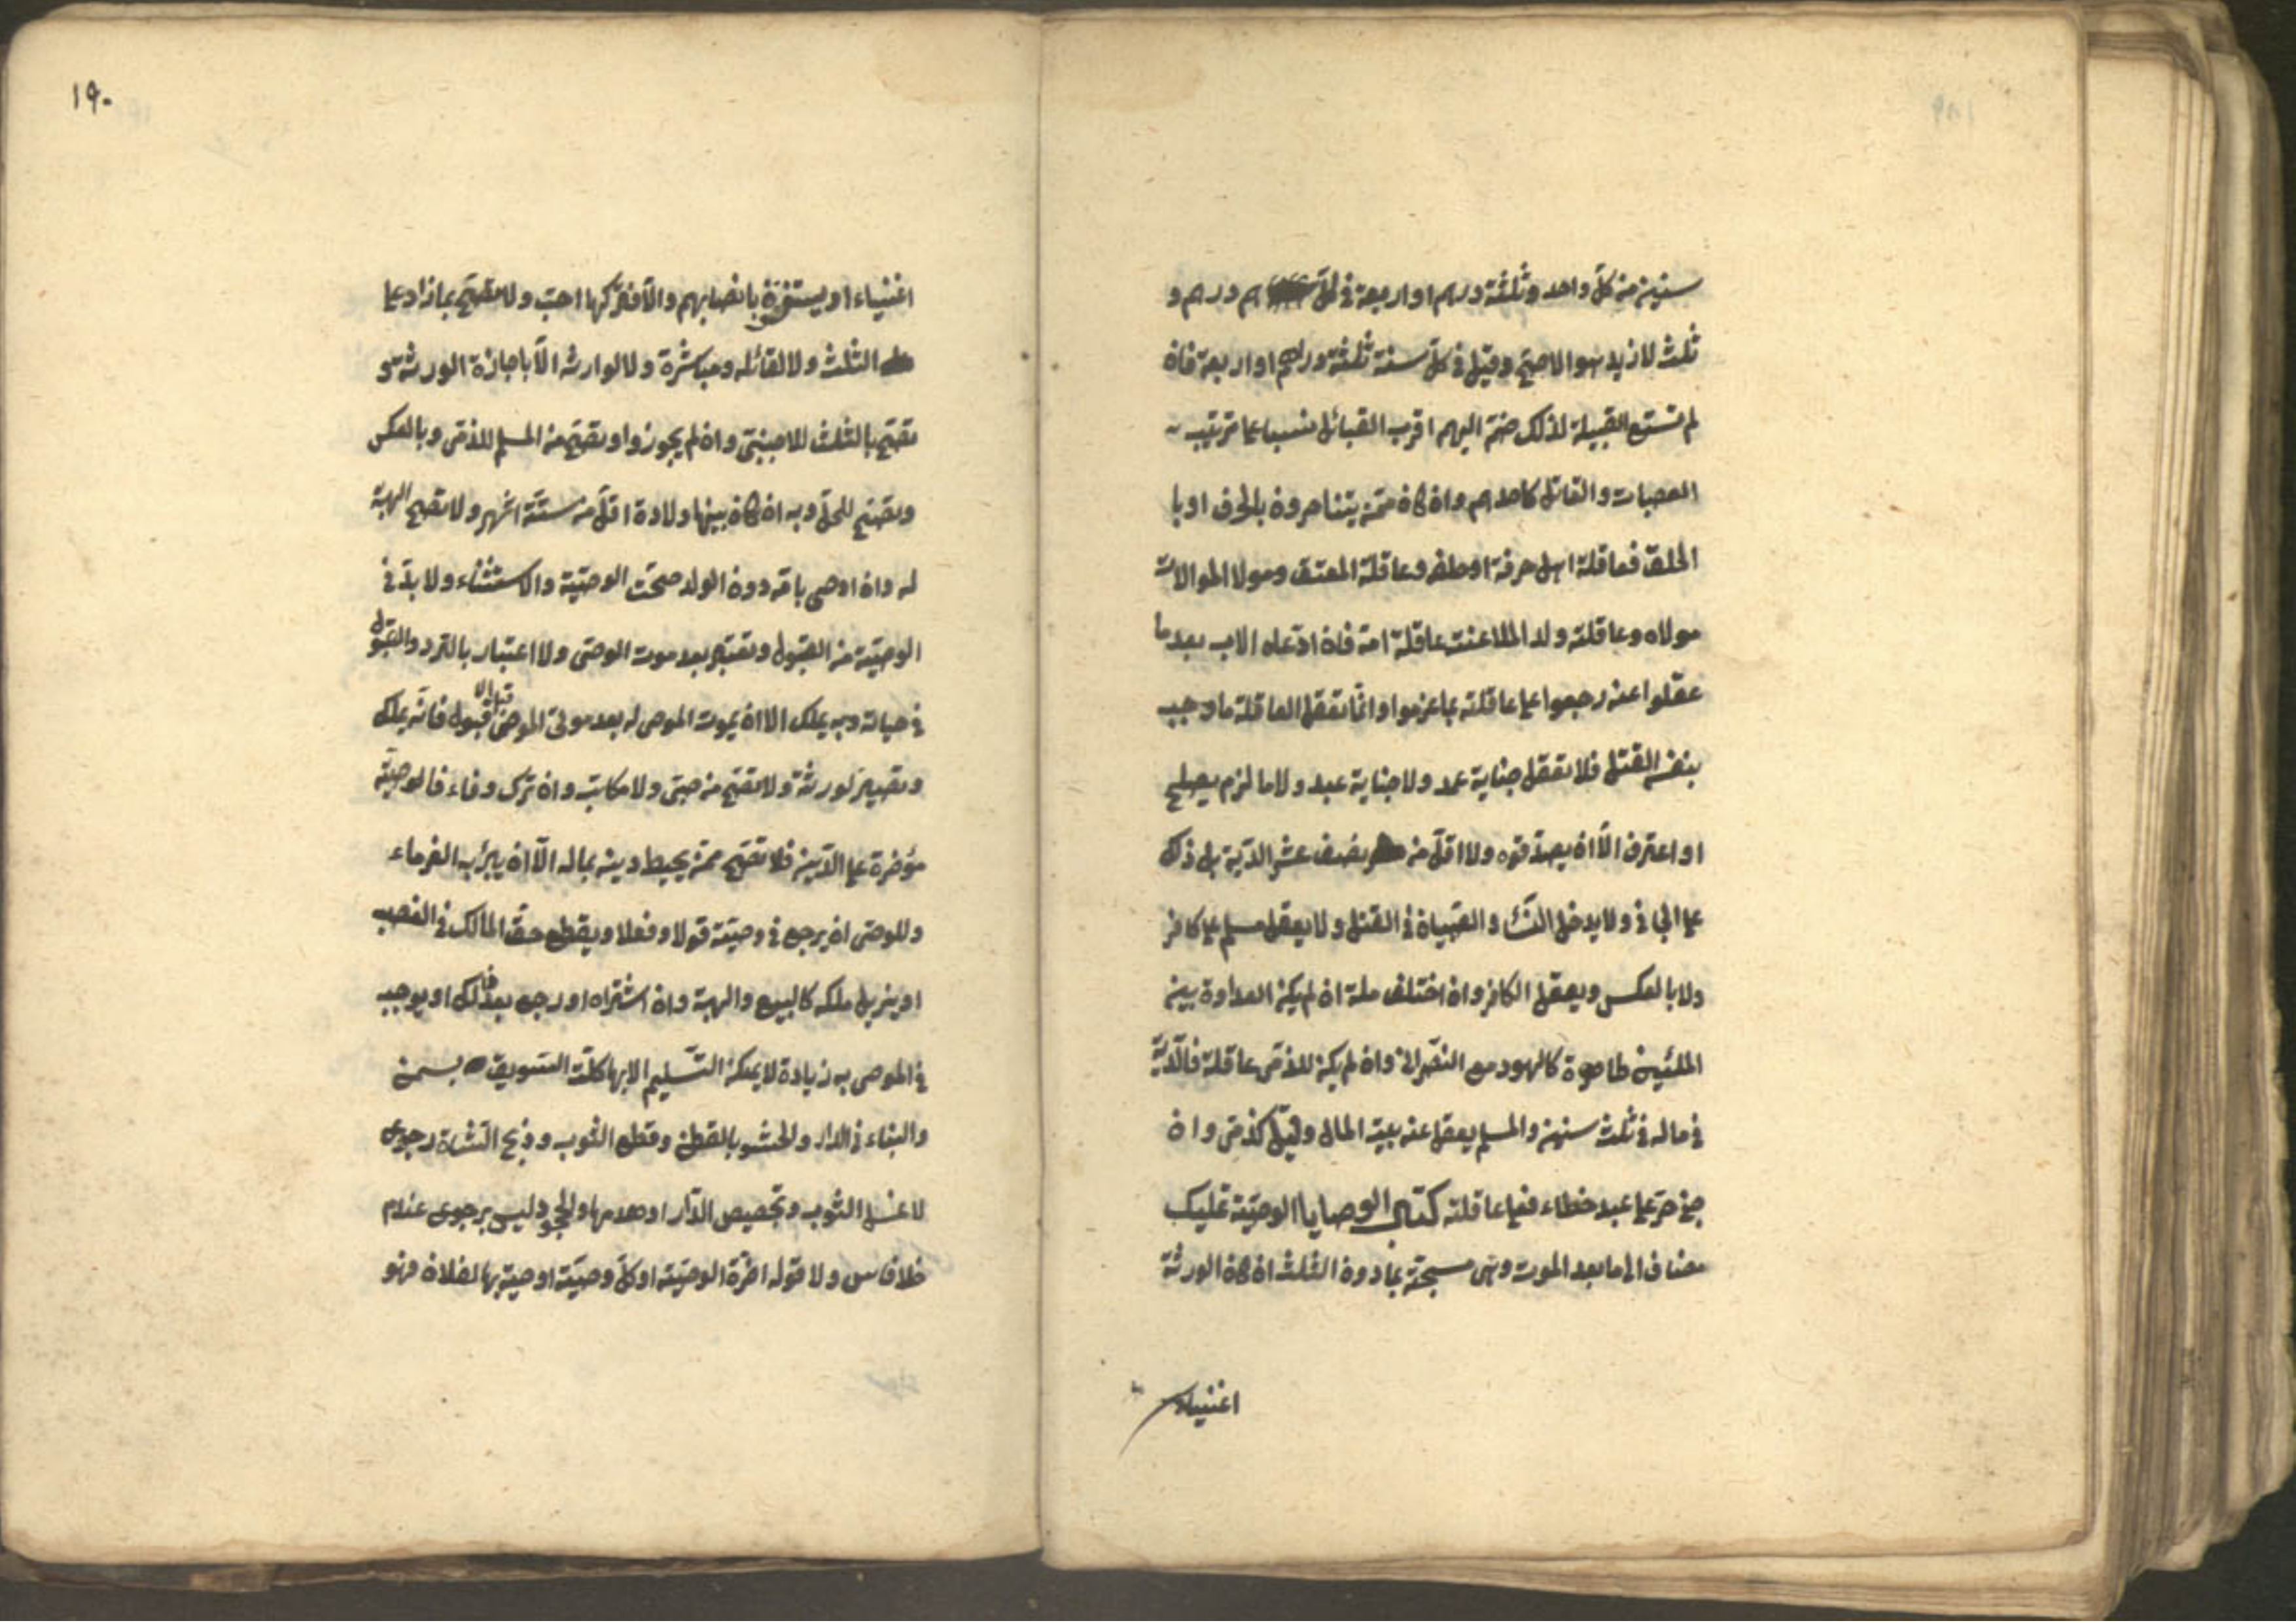 سنين من كلّ واحد وثلثة درهم او اربعة فى كلّ هم درهم و
ثلث لازيد هو الاصحّ وقيل فى كلّ سنة ثلثة دراهم او اربعة فان
لم تتسع القبيلة لذلك ضمّ اليهم اقرب القبائل نسبا على ترتيب
العصبات والقاتل كاحدهم وان كان ممّن يتناصرون بالحرف او با
الحلف فعاقلة اهل حرفة او حلفه وعاقلة المعتق ومولا الموالات
مولاه وعاقلته ولد الملاعنت عاقلة امّه فان ادّعاه الاب بعد ما
عقلوا عنه رجعوا على عاقلته بما غرموا وانّما تعقل العاقلة ما وجب
بنفس القتل فلا تعقل جناية عمد ولا جناية عبد ولا ما لزم بصلح
او اعترف الّا ان يصدّقوه ولا اقلّ من نصف عشر الدّية بل ذلك
على الجانى ولا يدخل النّسا والصّبيان فى القتل ولا يعقل مسلم على كافر
ولا بالعكس ويعقل الكافر وان اختلف ملة ان لم يكن العداوة بين
الملتين ظاهرة كاليهود مع النّصرانى وان لم يكن للذمّى عاقلة فالدّية
فى ماله فى ثلث سنين والمسلم يعقل عنه بيت المال وقيل كذمّى وان
جنى حرّ على عبد خطاء فعلى عاقلته كتاب الوصايا الوصيّة تمليك
مضاف الى ما بعد الموت وهى مستحبّة بما دون الثلث ان كان الورثة
اغنياء
١٩٠
اغنياء او يستغنون بانصبائهم والّا فتركها احبّ ولا تصحّ بما زاد على
الثلث ولا لقاتله مباشرة ولا لوارثه الّا باجازة الورثة و
تصحّ بالثلث للاجنبىّ وان لم يجوزوا وتصحّ من المسلم للذمّى وبالعكس
وتصحّ للحمل وبه ان كان بينها ولادة اقلّ من ستّة اشهر ولا تصحّ الهبة
له وان اوصى بامّه دون الولد صحّت الوصيّة والاستثناء ولا بدّ فى
الوصيّة من القبول وتعتبر بعد موت الموصى ولا اعتبار بالرّد والقبول
فى حياته وبه يملك الا ان يموت الموصى له بعد موت الموصى قبل القبول فانّه يملك
وتصير لورثة ولا تصحّ من صبىّ ولا مكاتب وان ترك وفاء فالوصيّة
مؤخرة على الدّين فلا تصحّ ممّن يحيط دينه بماله الّا ان يبرأ به الغرماء
وللموصى ان يرجع فى وصيّته قولا وفعلا ويقطع حقّ المالك فى الغصب
او يزيل ملكه كالبيع والهبة وان اشتراه او رجع بعد ذلك او يوجب
فى الموصى به زيادة لا يمكن التّسليم الا بها كلتّ السّويق بسمن
والبناء فى الدّار والحشو بالقطن وقطع الثوب وذبح الشّاة رجوع
لا غسل الثوب وتجصيص الدّار او هدمها والجحود ليس برجوع عند م
خلافا س ولا قوله اخّرة الوصيّة او كلّ وصيّة اوصيت بها لفلان فهو